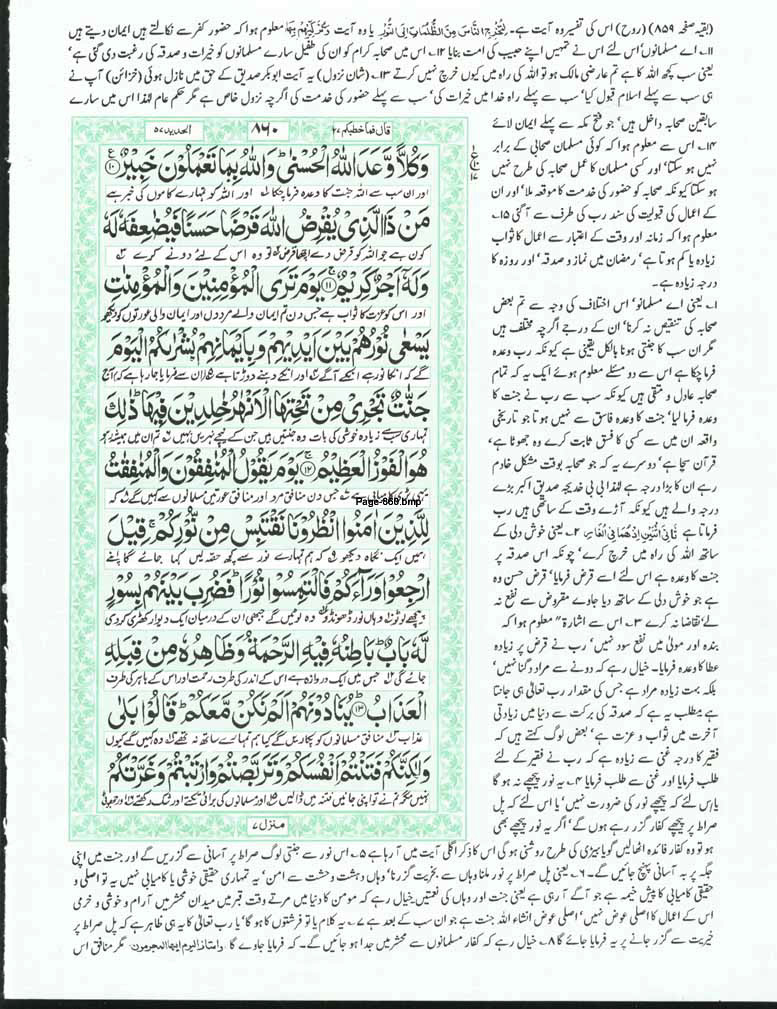 (بقیہ صفحہ ۸۵۹) (روح) اس کی تفسیر وہ آیت ہے۔ لِتُخْرِجَ النَّاسَ مِنَ الظُّلُمَاتِ اِلَى النُّوْرِ یا وہ آیت وَیُزَكِّیْهِمْ معلوم ہوا کہ حضور کفر سے نکالتے ہیں ایمان دیتے ہیں
۱۱۔ اے مسلمانوں اس لئے اس نے تمہیں اپنے حبیب کی امت بنایا ۱۲۔ اس میں صحابہ کرام کو ان کی طفیل سارے مسلمانوں کو خیرات و صدقہ کی رغبت دی گئی ہے'
یعنی سب کچھ اللہ کا ہے تم عارضی مالک ہو تو اللہ کی راہ میں کیوں خرچ نہیں کرتے ۱۳۔ (شان نزول) یہ آیت ابوبکر صدیق کے حق میں نازل ہوئی (خزائن) آپ نے
ہی سب سے پہلے اسلام قبول کیا' سب سے پہلے راہ خدا میں خیرات کی' سب سے پہلے حضور کی خدمت کی اگرچہ نزول خاص ہے مگر حکم عام لہٰذا اس میں سارے
سابقین صحابہ داخل ہیں' جو فتح مکہ سے پہلے ایمان لائے
۱۴۔ اس سے معلوم ہوا کہ کوئی مسلمان صحابی کے برابر
نہیں ہو سکتا' اور کسی مسلمان کا عمل صحابہ کی طرح نہیں
ہو سکتا کیونکہ صحابہ کو حضور کی خدمت کا موقعہ ملا' اور ان
کے اعمال کی قبولیت کی سند رب کی طرف سے آگئی ۱۵۔
معلوم ہوا کہ زمانہ اور وقت کے اعتبار سے اعمال کا ثواب
زیادہ یا کم ہوتا ہے' رمضان میں نماز و صدقہ' اور روزہ کا
درجہ زیادہ ہے۔
۱۔ یعنی اے مسلمانو' اس اختلاف کی وجہ سے تم بعض
صحابہ کی تنقیص نہ کرنا' ان کے درجے اگرچہ مختلف ہیں
مگر ان سب کا جنتی ہونا بالکل یقینی ہے کیونکہ رب وعدہ
فرما چکا ہے اس سے دو مسئلے معلوم ہوئے ایک یہ کہ تمام
صحابہ عادل و متقی ہیں کیونکہ سب سے رب نے جنت کا
وعدہ فرما لیا' جنت کا وعدہ فاسق سے نہیں ہوتا جو تاریخی
واقعہ ان میں سے کسی کا فسق ثابت کرے وہ جھوٹا ہے'
قرآن سچا ہے' دوسرے یہ کہ جو صحابہ بوقت مشکل خادم
رہے ان کا بڑا درجہ ہے لہٰذا بی بی خدیجہ صدیق اکبر بڑے
درجہ والے ہیں کیونکہ آڑے وقت کے ساتھی ہیں رب
فرماتا ہے ثَانِیَ اثْنَیْنِ اِذْ هُمَا فِی الْغَارِ ۲۔ یعنی خوش دلی کے
ساتھ اللہ کی راہ میں خرچ کرے' چونکہ اس صدقہ پر
جنت کا وعدہ ہے اس لئے اسے قرض فرمایا' قرض حسن وہ
ہے جو خوش دلی کے ساتھ دیا جاوے مقروض سے نفع نہ
لے' تقاضا نہ کرے ۳۔ اس سے اشارۃ" معلوم ہوا کہ
بندہ اور مولیٰ میں نفع سود نہیں' رب نے قرض پر زیادہ
عطا کا وعدہ فرمایا۔ خیال رہے کہ دونے سے مراد دگنا نہیں'
بلکہ بہت زیادہ مراد ہے جس کی مقدار رب تعالیٰ ہی جانتا
ہے مطلب یہ ہے کہ صدقہ کی برکت سے دنیا میں زیادتی
آخرت میں ثواب و عزت ہے' بعض لوگ کہتے ہیں کہ
فقیر کا درجہ غنی سے زیادہ ہے کہ رب نے فقیر کے لئے
طلب فرمایا اور غنی سے طلب فرمایا ۴۔ یہ نور پیچھے نہ ہو گا
یا اس لئے کہ پیچھے نور کی ضرورت نہیں' یا اس لئے کہ پل
صراط پر پیچھے کفار گزر رہے ہوں گے' اگر یہ نور پیچھے بھی
قال فما خطبكم ۲۷
۸۶۰
الحدید ۵۷
وَكُلًّا وَّعَدَ اللّٰهُ الْحُسْنٰى وَاللّٰهُ بِمَا تَعْمَلُوْنَ خَبِیْرٌ ۝۱۰
اور ان سب سے اللہ جنت کا وعدہ فرما چکا اور اللہ کو تمہارے کاموں کی خبر ہے
مَنْ ذَا الَّذِیْ یُقْرِضُ اللّٰهَ قَرْضًا حَسَنًا فَیُضٰعِفَهٗ لَهٗ
کون ہے جو اللہ کو قرض دے اچھا قرض تو وہ اس کے لئے دونے کرے
وَلَهٗۤ اَجْرٌ كَرِیْمٌ ۝۱۱ یَوْمَ تَرَى الْمُؤْمِنِیْنَ وَالْمُؤْمِنٰتِ
اور اس کو عزت کا ثواب ہے جس دن تم ایمان والے مردوں اور ایمان والی عورتوں کو دیکھو
یَسْعٰى نُوْرُهُمْ بَیْنَ اَیْدِیْهِمْ وَبِاَیْمَانِهِمْ بُشْرٰىكُمُ الْیَوْمَ
گے کہ انکا نور ہے انکے آگے اور انکے دہنے دوڑتا ہے ان سے فرمایا جا رہا ہے کہ آج
جَنّٰتٌ تَجْرِیْ مِنْ تَحْتِهَا الْاَنْهٰرُ خٰلِدِیْنَ فِیْهَا ذٰلِكَ
تمہاری سب سے زیادہ خوشی کی بات وہ جنتیں ہیں جن کے نیچے نہریں بہیں تم ان میں ہمیشہ رہو
هُوَ الْفَوْزُ الْعَظِیْمُ ۝۱۲ یَوْمَ یَقُوْلُ الْمُنٰفِقُوْنَ وَالْمُنٰفِقٰتُ
یہی بڑی کامیابی ہے جس دن منافق مرد اور منافق عورتیں مسلمانوں سے کہیں گے کہ
Page-860.bmp
لِلَّذِیْنَ اٰمَنُوا انْظُرُوْنَا نَقْتَبِسْ مِنْ نُّوْرِكُمْ قِیْلَ
ہمیں ایک نگاہ دیکھو کہ ہم تمہارے نور سے کچھ حصہ لیں کہا جائے گا اپنے
ارْجِعُوْا وَرَآءَكُمْ فَالْتَمِسُوْا نُوْرًا فَضُرِبَ بَیْنَهُمْ بِسُوْرٍ
پیچھے لوٹو وہاں نور ڈھونڈو وہ لوٹیں گے جبھی ان کے درمیان ایک دیوار کھڑی کر دی
لَّهٗ بَابٌ بَاطِنُهٗ فِیْهِ الرَّحْمَةُ وَظَاهِرُهٗ مِنْ قِبَلِهِ
جائے گی جس میں ایک دروازہ ہے اس کے اندر کی طرف رحمت اور اس کے باہر کی طرف
الْعَذَابُ ۝۱۳ یُنَادُوْنَهُمْ اَلَمْ نَكُنْ مَّعَكُمْ قَالُوْا بَلٰى
عذاب منافق مسلمانوں کو پکاریں گے کیا ہم تمہارے ساتھ نہ تھے وہ کہیں گے کیوں
وَلٰكِنَّكُمْ فَتَنْتُمْ اَنْفُسَكُمْ وَتَرَبَّصْتُمْ وَارْتَبْتُمْ وَغَرَّتْكُمُ
نہیں مگر تم نے تو اپنی جانیں فتنہ میں ڈالیں اور مسلمانوں کی برائی تکتے اور شک رکھتے اور جھوٹی
منزل ۷
ہو تو وہ کفار فائدہ اٹھالیں گویا بیڑی کی طرح روشنی ہو گی اس کا ذکر اگلی آیت میں آ رہا ہے ۵۔ اس نور سے جنتی لوگ صراط پر آسانی سے گزریں گے اور جنت میں اپنی
جگہ پر بہ آسانی پہنچ جائیں گے۔ ۶۔ یعنی پل صراط پر نور ملنا وہاں سے بخیریت گزرنا' وہاں دہشت و حشت سے امن' یہ تمہاری حقیقی خوشی یا کامیابی نہیں یہ تو اصلی و
حقیقی کامیابی کا پیش خیمہ ہے جو آگے آ رہی ہے یعنی جنت اور وہاں کی نعمتیں خیال رہے کہ مومن کا دنیا میں مرتے وقت قبر میں میدان محشر میں آرام و خوشی و خرمی
اس کے اعمال کا اصلی عوض نہیں' اصلی عوض انشاء اللہ جنت ہے جو ان سب کے بعد ہے ۷۔ یہ کلام یا تو فرشتوں کا ہو گا' یا رب تعالیٰ کا یہ ہی ظاہر ہے کہ پل صراط پر
خیریت سے گزر جانے پر یہ فرمایا جائے گا ۸۔ خیال رہے کہ کفار مسلمانوں سے محشر میں جدا ہو جائیں گے۔ کہ فرمایا جاوے گا وامتازوا الیوم ایها المجرمون مگر منافق اس